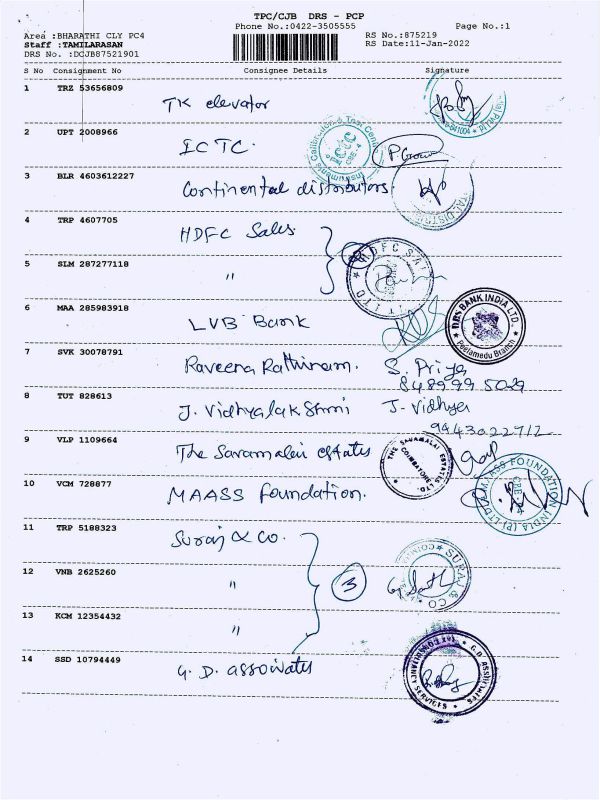 TPC/CJB DRS - PCP
Phone No.:0422-3505555 Page No.:1
Area :BHARATHI CLY PC4 RS No.:875219
Staff :TAMILARASAN RS Date:11-Jan-2022
DRS No. :DCJB87521901
S No Consignment No Consignee Details Signature
1 TRZ 53656809
TK elevator
2 UPT 2008966
ICTC.
3 BLR 4603612227
Continental distributors.
4 TRP 4607705
HDFC Sales
5 SLM 287277118
"
6 MAA 285983918
LVB Bank
DBS BANK INDIA LTD.
Peelamedu Branch
7 SVK 30078791
Raveena Rathinam. S. Priya
8489995029
8 TUT 828613
J. Vidhyalakshmi J. Vidhya
9443022712
9 VLP 1109664
The Saramalai estates
THE SARAMALAI ESTATES
COIMBATORE
10 VCM 728877
MAASS Foundation.
MAASS FOUNDATION INDIA (P) LTD
CBE
11 TRP 5188323
Suraj & Co.
12 VNB 2625260
" 3
SURAJ & CO
13 KCM 12354432
"
14 SSD 10794449
G. D. associates